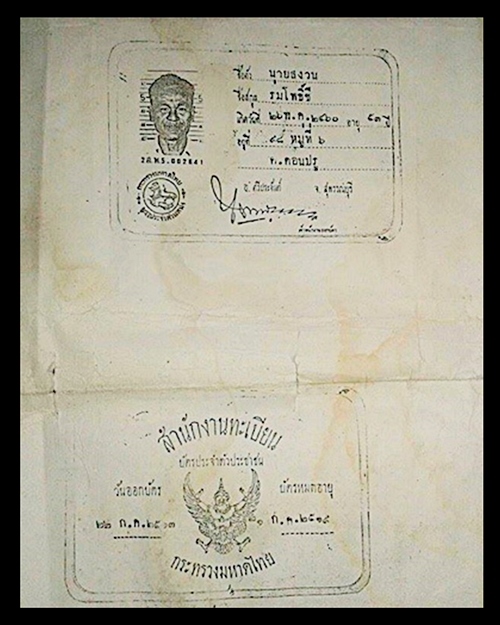 ชื่อตัว นายสงวน
ชื่อสกุล รมโพธิ์ชี
เกิดวันที่ ๒๖ พ.ค. ๒๔๖๐ อายุ ๕๓ ปี
ที่อยู่ ๔๔ หมู่ที่ ๖
ต.ดอนปรู
อ. ศรีประจันต์ จ. สุพรรณบุรี
สำนักงานทะเบียน
บัตรประจำตัวประชาชน
วันออกบัตร บัตรหมดอายุ
๒๒ ก.ค.๒๕๑๓ ๒๑ ก.ค.๒๕๑๙
กระทรวงมหาดไทย